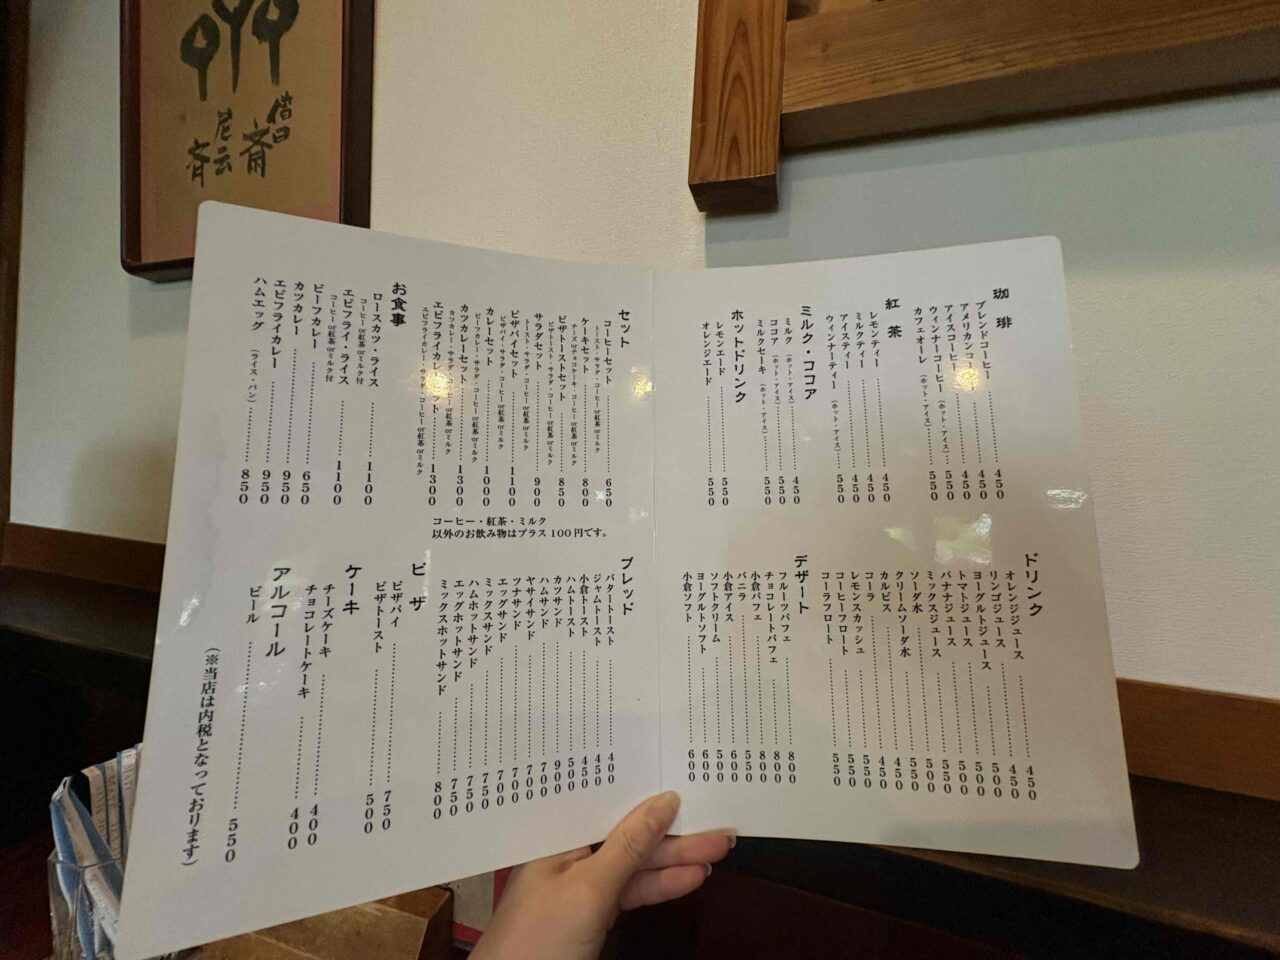 珈琲
ブレンドコーヒー 450
アメリカンコーヒー 450
アイスコーヒー 550
ウィンナーコーヒー（ホット・アイス） 550
カフェオーレ（ホット・アイス） 550
紅茶
レモンティー 450
ミルクティー 450
アイスティー 450
ウィンナーティー（ホット・アイス） 550
ミルク・ココア
ミルク（ホット・アイス） 450
ココア（ホット・アイス） 550
ミルクセーキ（ホット・アイス） 550
ホットドリンク
レモンエード 550
オレンジエード 550
ドリンク
オレンジジュース 450
リンゴジュース 450
ヨーグルトジュース 500
トマトジュース 500
バナナジュース 550
ミックスジュース 550
ソーダ水 500
クリームソーダ水 500
カルピス 450
コーラ 450
レモンスカッシュ 550
コーヒーフロート 550
コーラフロート 550
デザート
フルーツパフェ 800
チョコレートパフェ 800
小倉パフェ 800
バニラ 550
小倉アイス 600
ソフトクリーム 500
ヨーグルトソフト 600
小倉ソフト 600
セット
コーヒーセット 650
トースト・サラダ・コーヒーor紅茶orミルク
ケーキセット 800
チーズorチョコケーキ・コーヒーor紅茶orミルク
ピザトーストセット 850
ピザトースト・サラダ・コーヒーor紅茶orミルク
サラダセット 900
トースト・サラダ・コーヒーor紅茶orミルク
ピザパイセット 1100
ピザパイ・サラダ・コーヒーor紅茶orミルク
カレーセット 1000
ビーフカレー・サラダ・コーヒーor紅茶orミルク
カツカレーセット 1300
カツカレー・サラダ・コーヒーor紅茶orミルク
エビフライカレーセット 1300
エビフライカレー・サラダ・コーヒーor紅茶orミルク
コーヒー・紅茶・ミルク
以外のお飲み物はプラス100円です。
お食事
ロースカツ・ライス 1100
コーヒーor紅茶orミルク付
エビフライ・ライス 1100
コーヒーor紅茶orミルク付
ビーフカレー 650
カツカレー 950
エビフライカレー 950
ハムエッグ（ライス・パン） 850
ブレッド
バタートースト 400
ジャムトースト 450
小倉トースト 450
ハムトースト 500
カツサンド 900
ハムサンド 700
ヤサイサンド 700
ツナサンド 700
エッグサンド 700
ミックスサンド 750
ハムホットサンド 750
エッグホットサンド 750
ミックスホットサンド 800
ピザ
ピザパイ 750
ピザトースト 500
ケーキ
チーズケーキ 400
チョコレートケーキ 400
アルコール
ビール 550
（※当店は内税となっております）